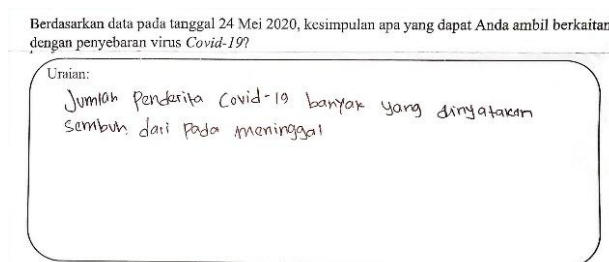 Berdasarkan data pada tanggal 24 Mei 2020, kesimpulan apa yang dapat Anda ambil berkaitan
dengan penyebaran virus Covid-19?
Uraian:
Jumlah Penderita Covid-19 banyak yang dinyatakan
sembuh dari pada meninggal